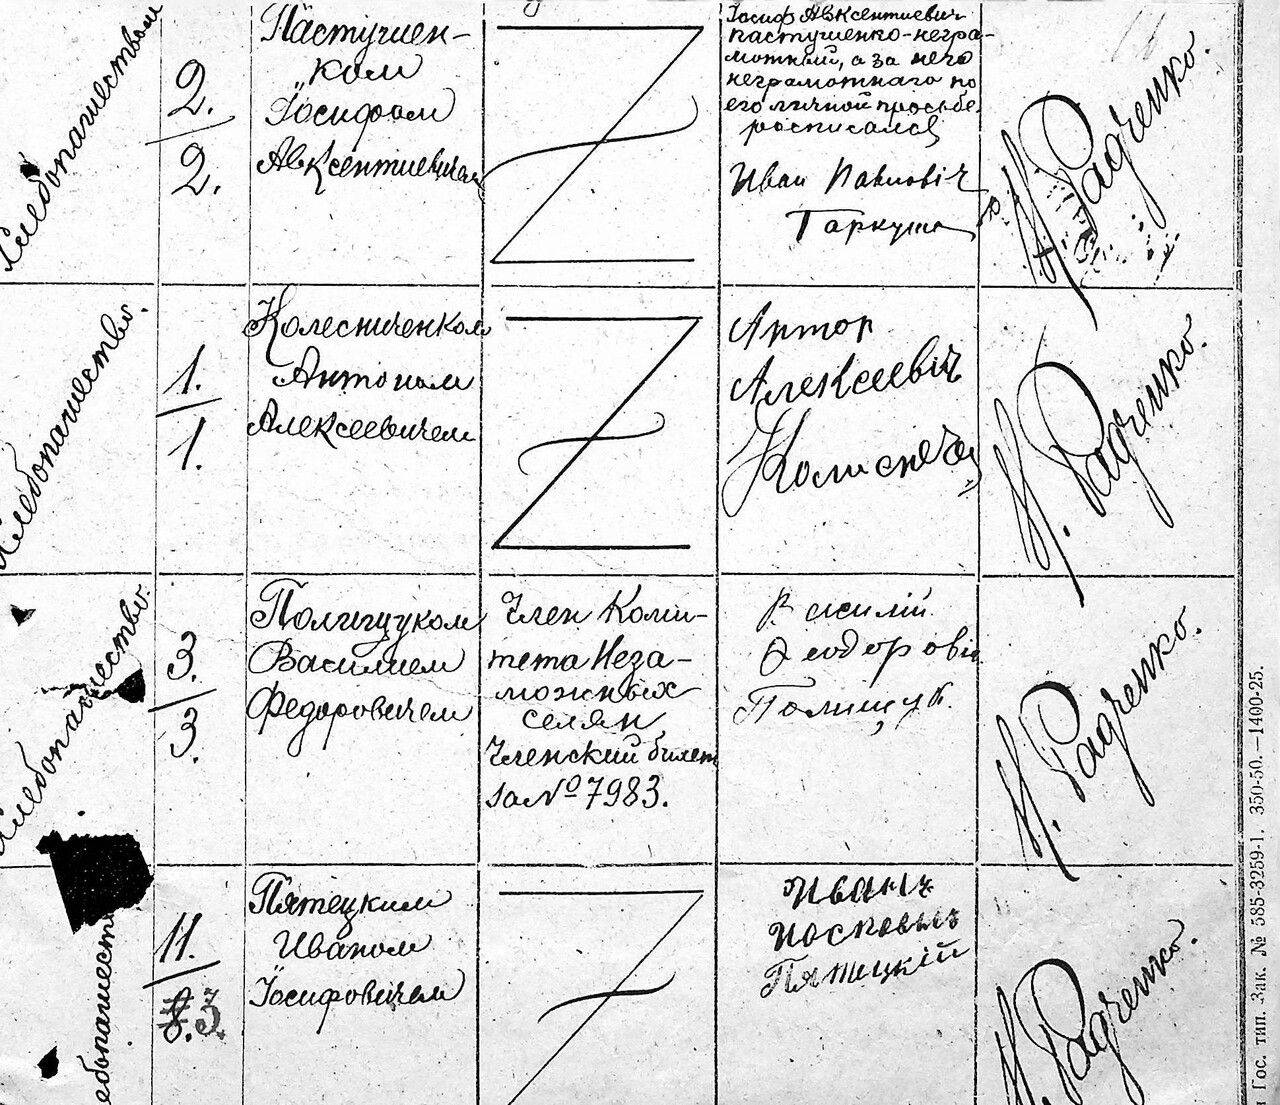 Хлебопашеством
2.
2.
Пастушен-
ком
Іосифом
Авксентиевичем
Іосиф Авксентиевич
пастушенко-негра-
мотный, а за него
неграмотнаго по
его личной просьбе
росписался
Иван Павловіч
Гаркуша
И. Радченко.
Хлебопашество.
1.
1.
Колесниченком
Антоном
Алексеевичем
Антон
Алексеевіч
И. Радченко.
Хлебопашество.
3.
3.
Полищуком
Василием
Федоровичем
Член Коми-
тета Неза-
можных
селян
Членский билет
за № 7983.
Василій
Феодоровіч
Полищук.
И. Радченко.
Хлебопашество
11.
3.
Пятецким
Иваном
Іосифовичем
Иванъ
Пятецкій
И. Радченко.
Гос. тип. Зак. № 585-3259-1. 350-50.—1400-25.